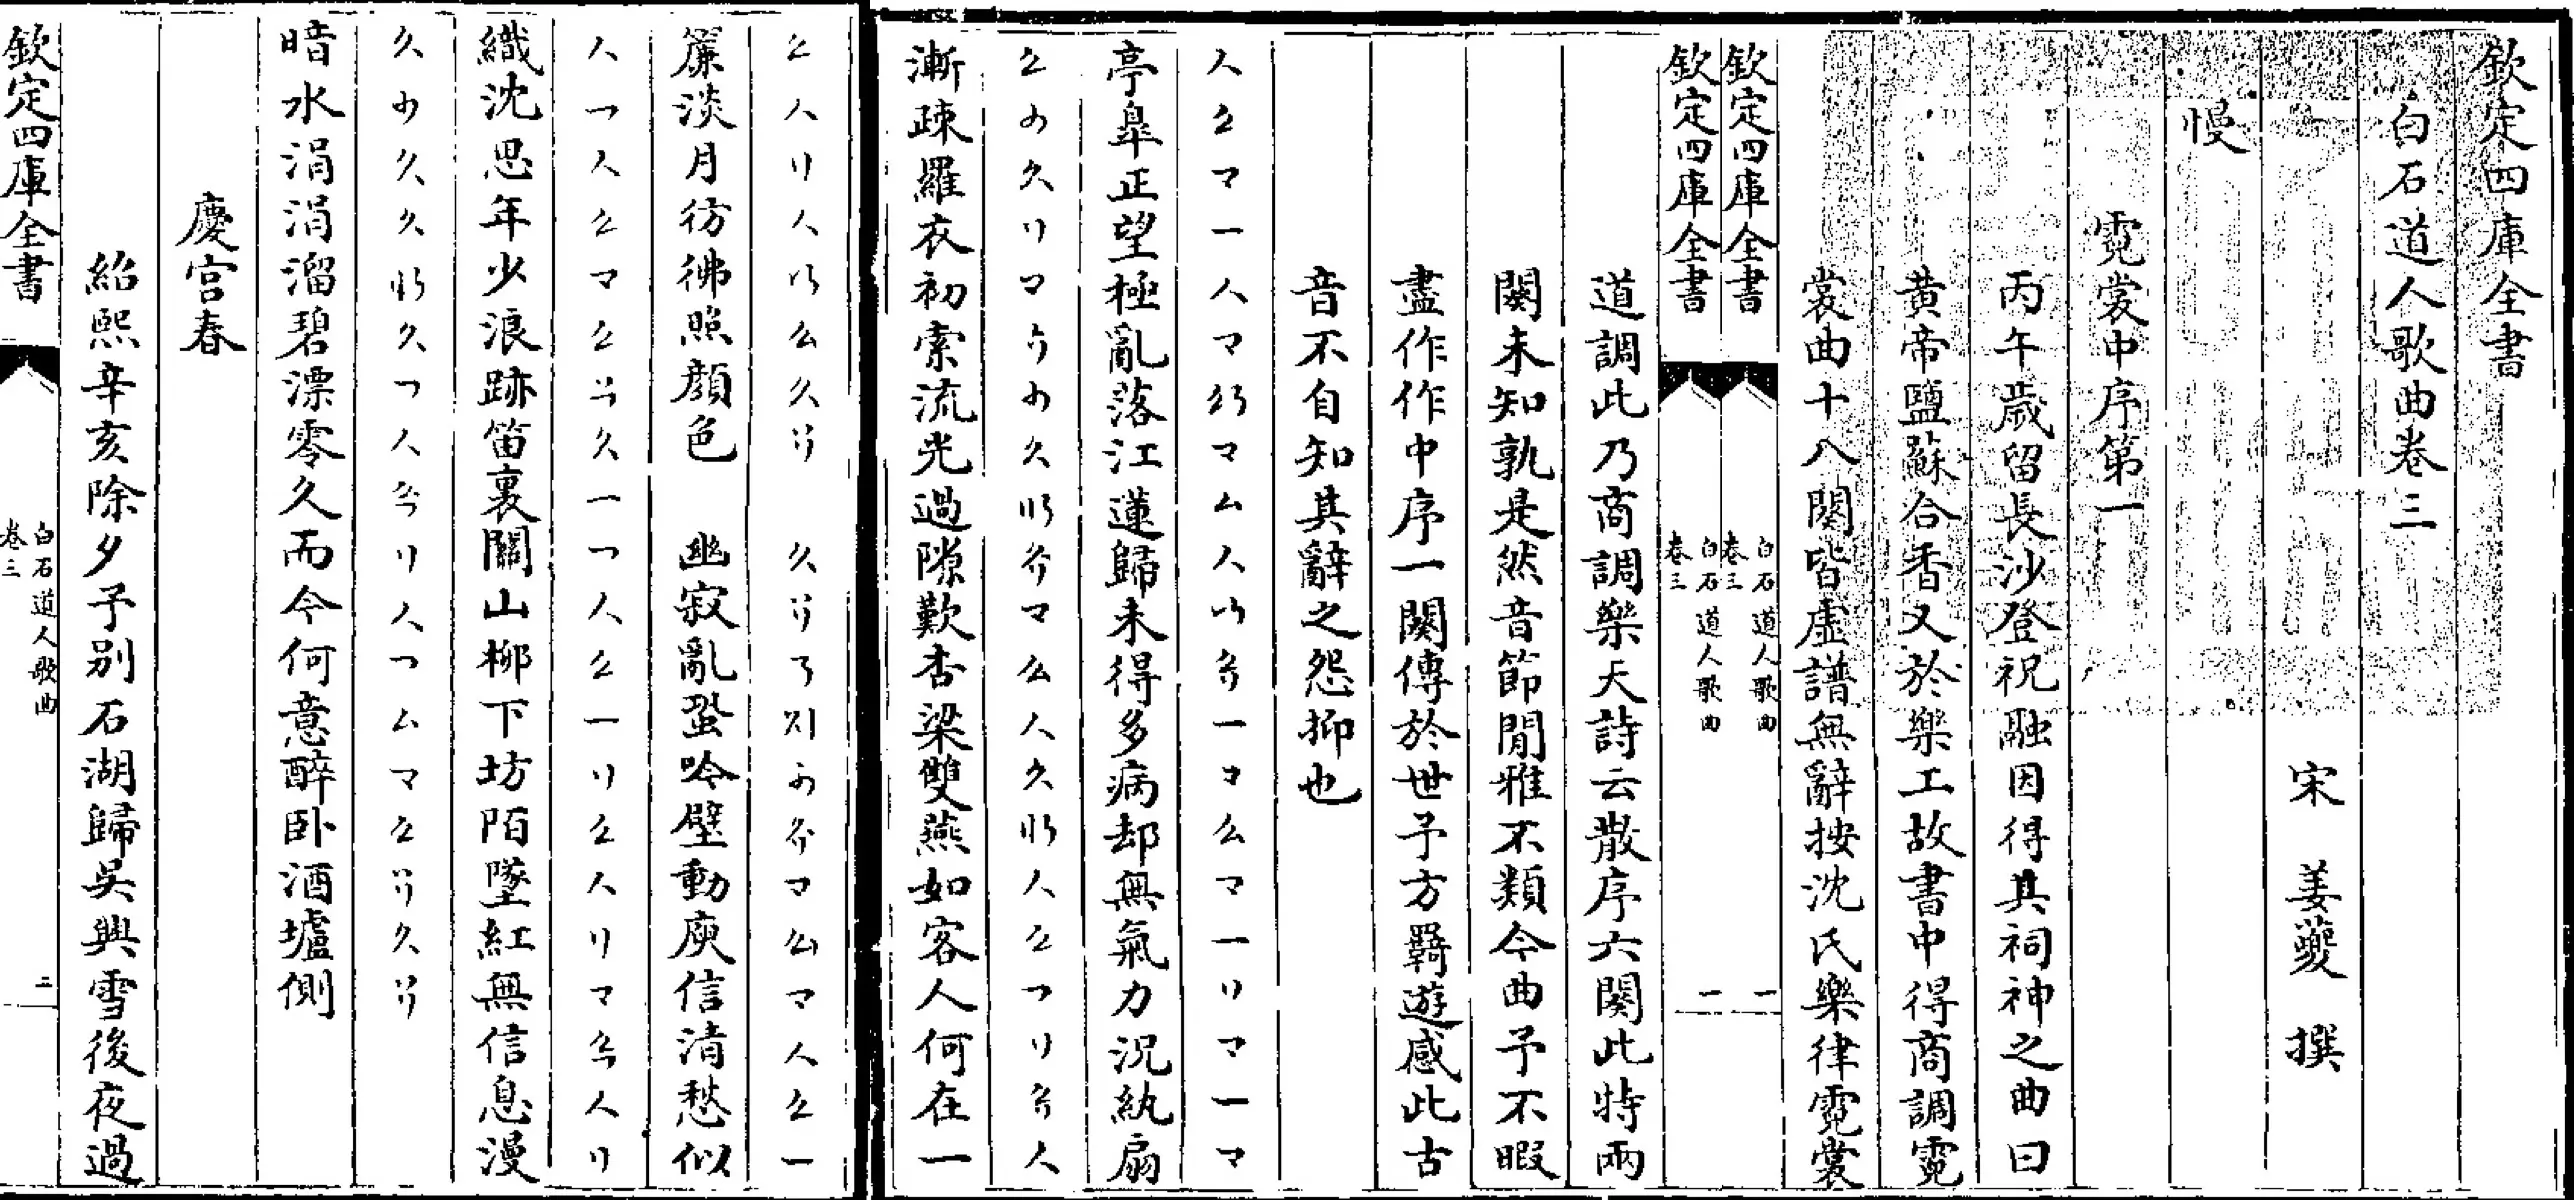 欽定四庫全書
白石道人歌曲卷三
宋 姜夔 撰
慢
霓裳中序第一
丙午歲留長沙登祝融因得其祠神之曲曰
黄帝鹽蘇合香又於樂工故書中得商調霓
裳曲十八闋皆虚譜無辭按沈氏樂律霓裳
欽定四庫全書 白石道人歌曲 卷三 一
欽定四庫全書 白石道人歌曲 卷三 一
道調此乃商調樂天詩云散序六闋此特兩
闋未知孰是然音節閒雅不類今曲予不暇
盡作作中序一闋傳於世予方羇遊感此古
音不自知其辭之怨抑也
亭臯正望極亂落江蓮歸未得多病却無氣力況紈扇
漸疎羅衣初索流光過隙歎杏梁雙燕如客人何在一
簾淡月彷彿照顔色 幽寂亂蛩吟壁動庾信清愁似
織沈思年少浪跡笛裏關山柳下坊陌墜紅無信息漫
暗水涓涓溜碧漂零久而今何意醉卧酒壚側
慶宫春
紹熙辛亥除夕予别石湖歸吳興雪後夜過
欽定四庫全書 白石道人歌曲 卷三 二